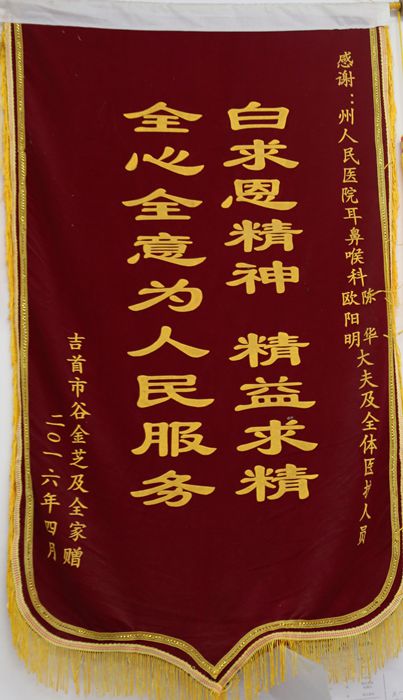 感谢：州人民医院耳鼻喉科陈华欧阳明大夫及全体医护人员
白求恩精神 精益求精
全心全意为人民服务
吉首市谷金芝及全家赠
二〇一六年四月